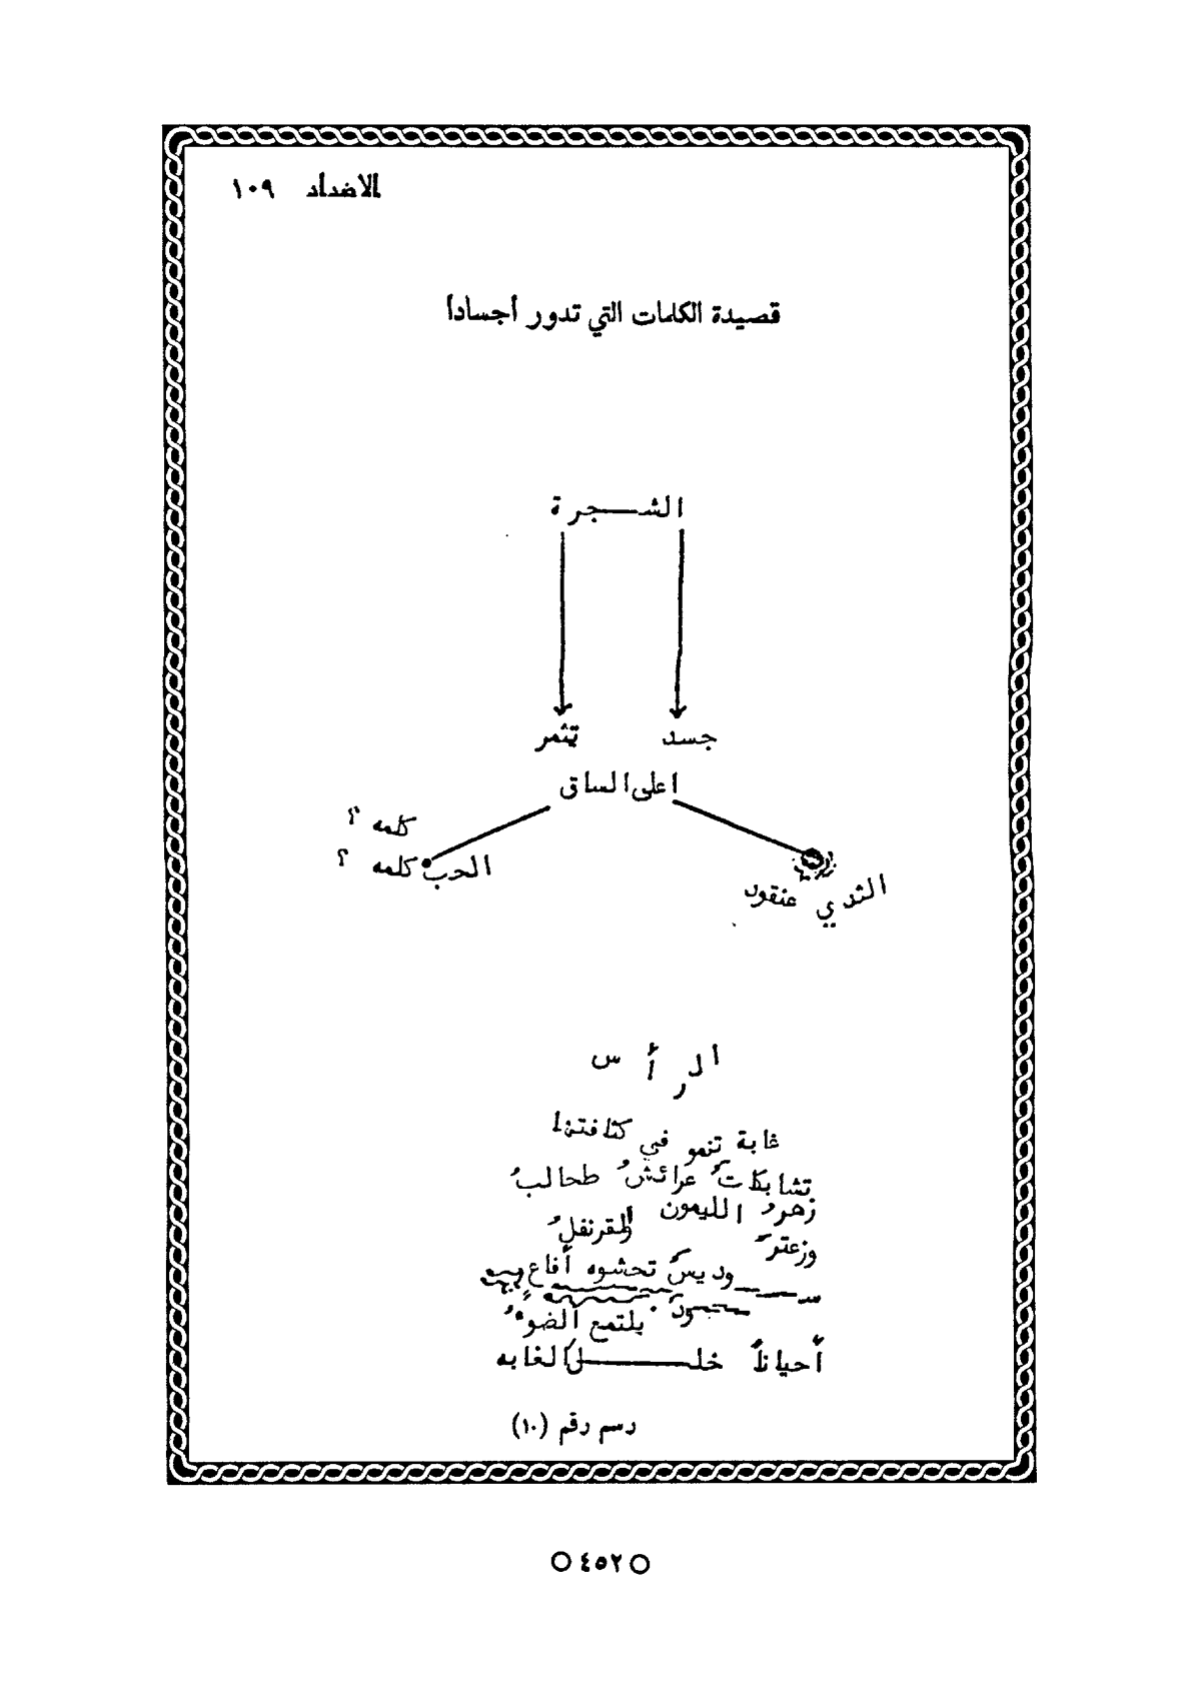 الاضداد ١٠٩
قصيدة الكلمات التي تدور أجساداً
الشـــجرة
جسد تثمر
اعلى الساق
كلمه ؟
الحب كلمه ؟
الثدي عنقود
الرأس
غابة تنمو في كثافتها
تشابكت عرائش طحالب
زهر الليمون القرنفل
وزعتر
وديس تحشوه أفاع
يلتمع الضوء
أحياناً خلـــــل الغابه
رسم رقم (١٠)
٤٥٢